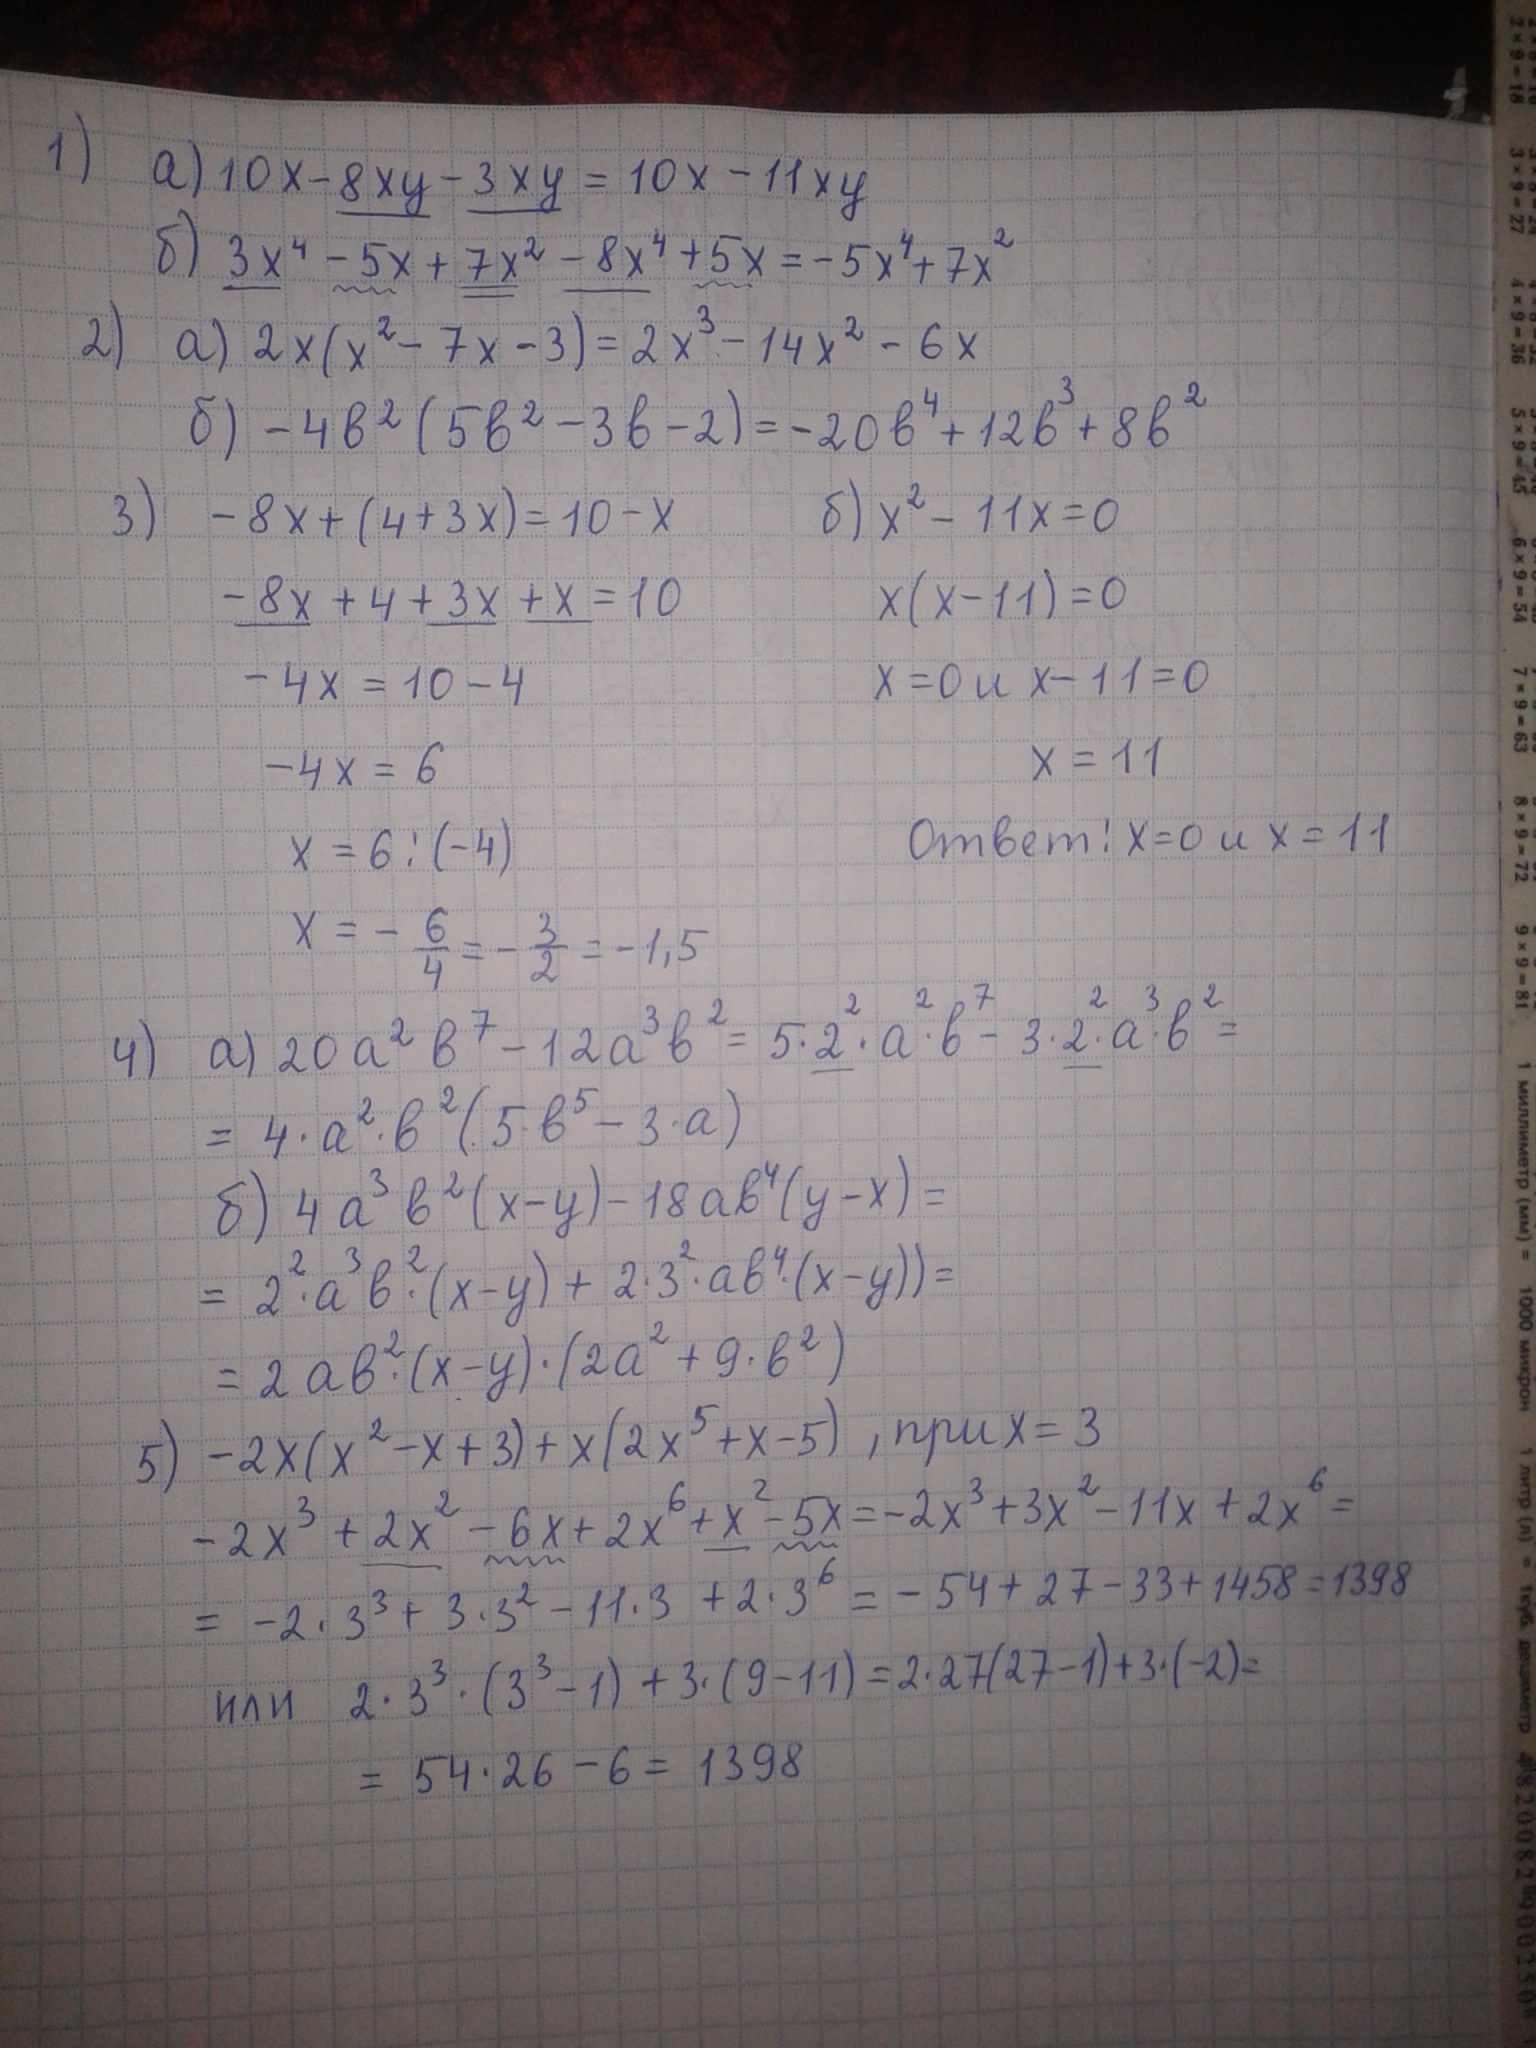 1) а) 10x - 8xy - 3xy = 10x - 11xy
б) 3x⁴ - 5x + 7x² - 8x⁴ + 5x = -5x⁴ + 7x²
2) а) 2x(x² - 7x - 3) = 2x³ - 14x² - 6x
б) -4b²(5b² - 3b - 2) = -20b⁴ + 12b³ + 8b²
3) -8x + (4 + 3x) = 10 - x
-8x + 4 + 3x + x = 10
-4x = 10 - 4
-4x = 6
x = 6 : (-4)
x = -6/4 = -3/2 = -1,5
б) x² - 11x = 0
x(x - 11) = 0
x = 0 и x - 11 = 0
x = 11
Ответ: x = 0 и x = 11
4) а) 20a²b⁷ - 12a³b² = 5·2²·a²·b⁷ - 3·2²·a³·b² =
= 4·a²·b²(5·b⁵ - 3·a)
б) 4a³b²(x - y) - 18ab⁴(y - x) =
= 2²·a³b²·(x - y) + 2·3²·ab⁴·(x - y)) =
= 2ab²·(x - y)·(2a² + 9·b²)
5) -2x(x² - x + 3) + x(2x⁵ + x - 5), при x = 3
-2x³ + 2x² - 6x + 2x⁶ + x² - 5x = -2x³ + 3x² - 11x + 2x⁶ =
= -2·3³ + 3·3² - 11·3 + 2·3⁶ = -54 + 27 - 33 + 1458 = 1398
или 2·3³·(3³ - 1) + 3·(9 - 11) = 2·27(27 - 1) + 3·(-2) =
= 54·26 - 6 = 1398
2×9=18 3×9=27 4×9=36 5×9=45 6×9=54 7×9=63 8×9=72 9×9=81 1 миллиметр (мм) = 1000 микрон 1 литр (л) = 1куб. дециметр